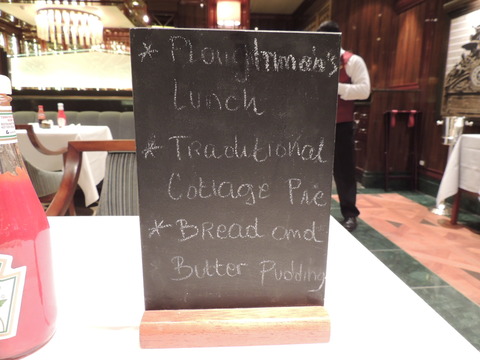 * Ploughman's
Lunch
* Traditional
Cottage Pie
* Bread and
Butter Pudding